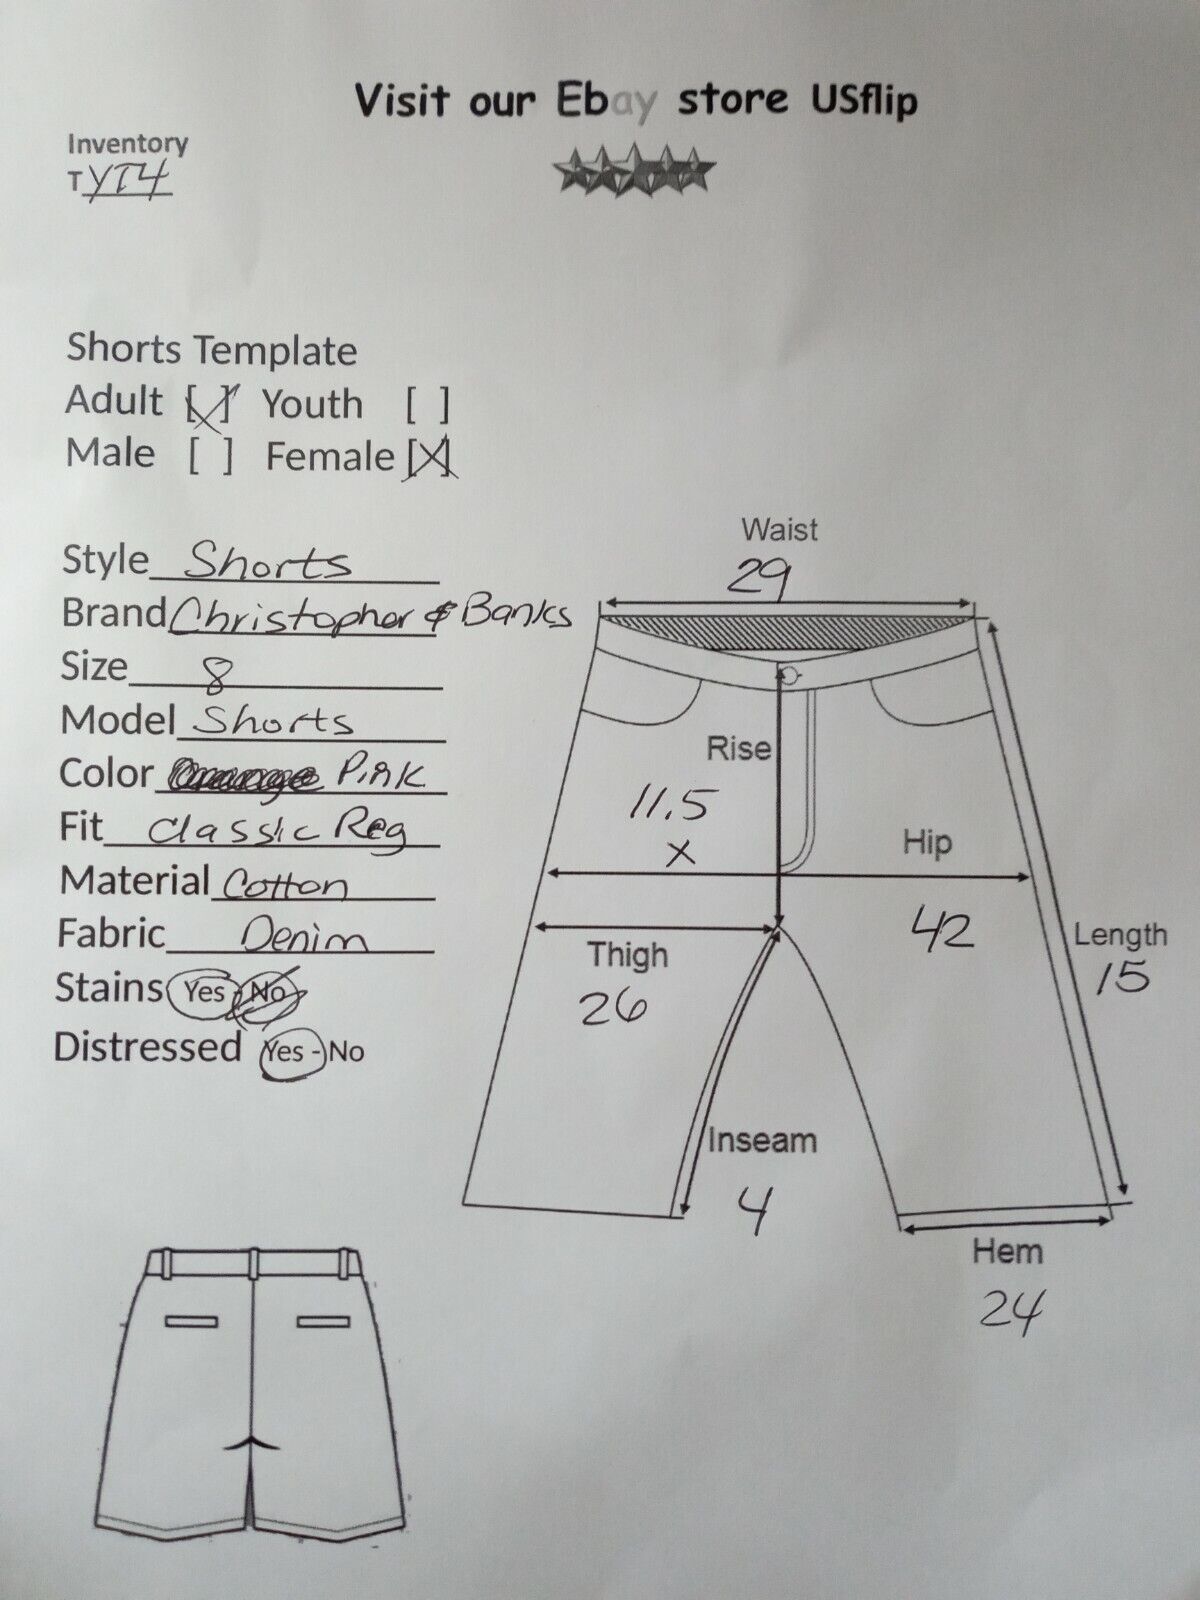 Visit our Ebay store USflip
Inventory
TYT4
Shorts Template
Adult [X] Youth [ ]
Male [ ] Female [X]
Style Shorts
Brand Christopher & Banks
Size 8
Model Shorts
Color Orange Pink
Fit Classic Reg
Material Cotton
Fabric Denim
Stains Yes - No
Distressed Yes - No
Waist
29
Rise
11.5
x
Hip
42
Thigh
26
Length
15
Inseam
4
Hem
24